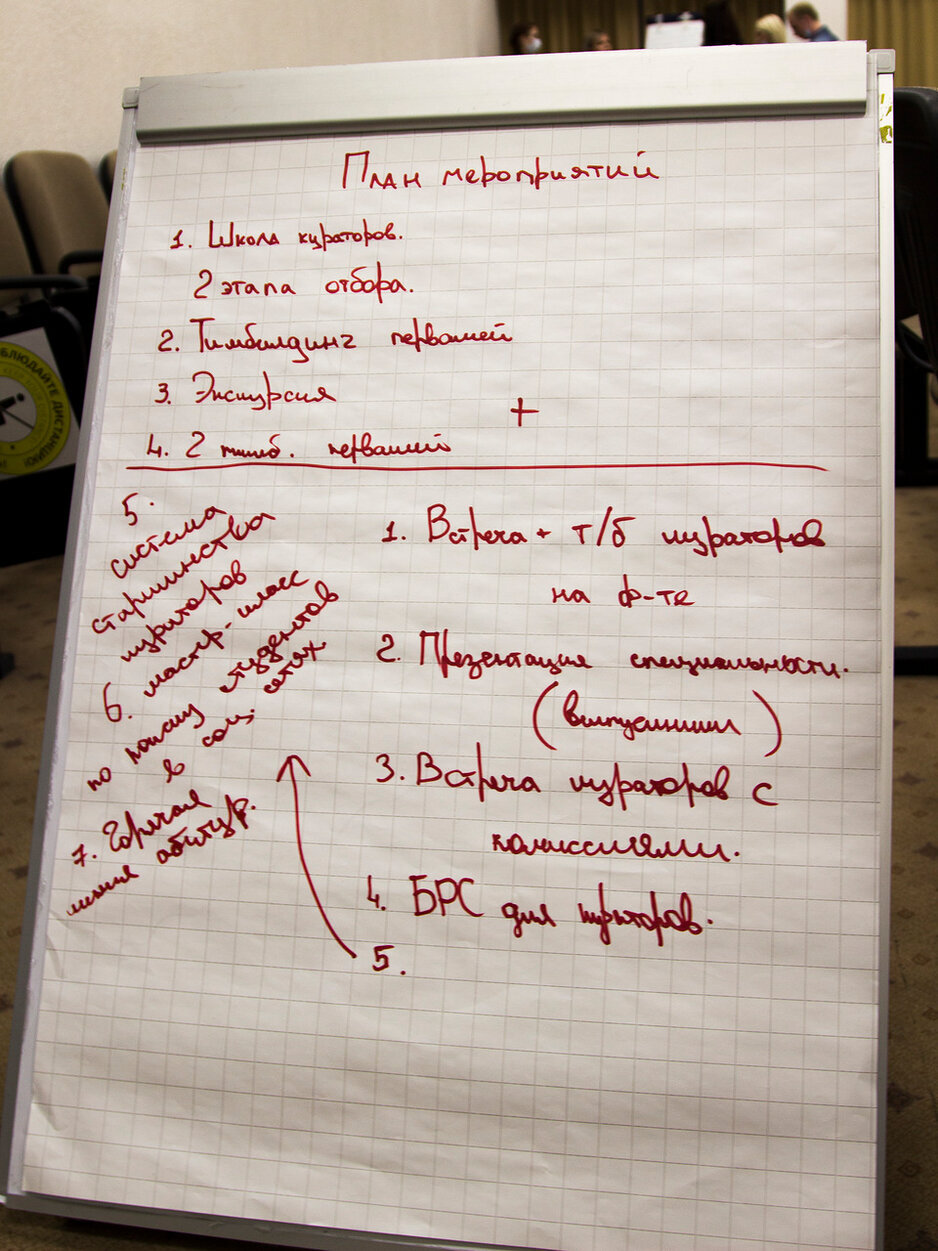 План мероприятий
1. Школа кураторов.
2 этапа отбора.
2. Тимбилдинг первашей
3. Экскурсия
+
4. 2 тимб. первашей
1. Встреча + т/б кураторов
на ф-те
2. Презентация специальности.
(выпускники)
3. Встреча кураторов с
комиссиями.
4. БРС для кураторов.
5.
5.
система
старшинства
кураторов
6. мастер-класс
по поиску студентов
в соц. сетях
7. Горячая
линия абитур.
БЛЮДАЙТЕ ДИСТАНЦИЮ!